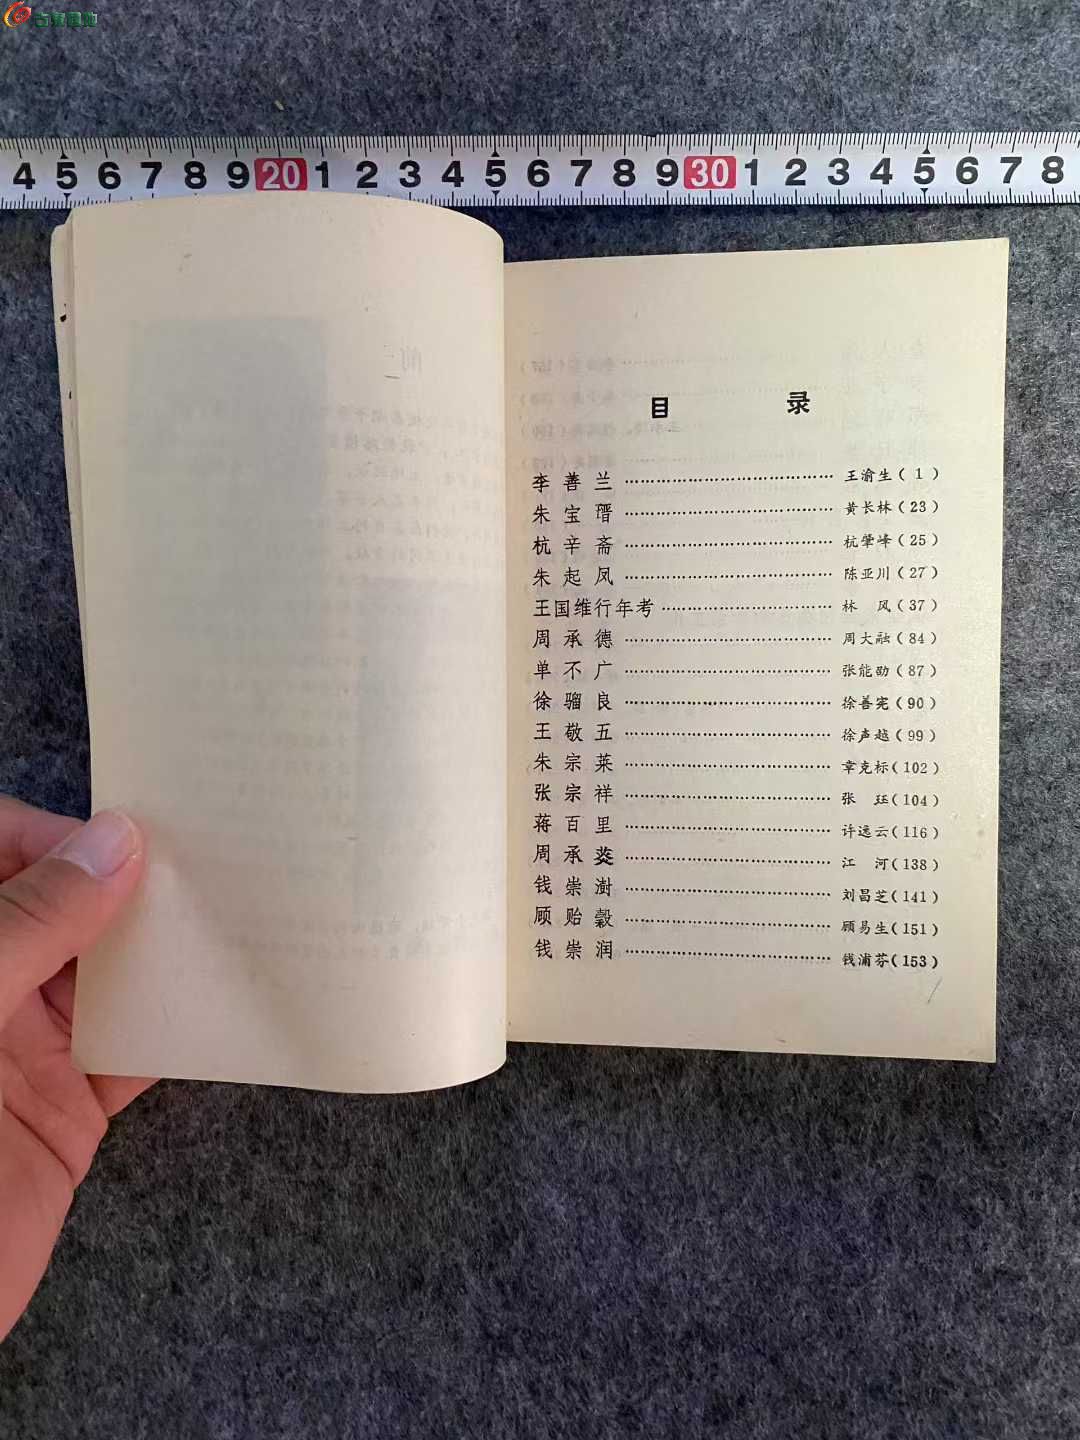 4 5 6 7 8 9 20 1 2 3 4 5 6 7 8 9 30 1 2 3 4 5 6 7 8
目 录
李善兰 …… 王渝生(1)
朱宝瑨 …… 黄长林(23)
杭辛斋 …… 杭肇峰(25)
朱起凤 …… 陈亚川(27)
王国维行年考 …… 林 风(37)
周承德 …… 周大融(84)
单不广 …… 张能劭(87)
徐骝良 …… 徐善宪(90)
王敬五 …… 徐声越(99)
朱宗莱 …… 章克标(102)
张宗祥 …… 张 珏(104)
蒋百里 …… 许逸云(116)
周承 …… 江 河(138)
钱崇澍 …… 刘昌芝(141)
顾贻穀 …… 顾易生(151)
钱崇润 …… 钱浦芬(153)